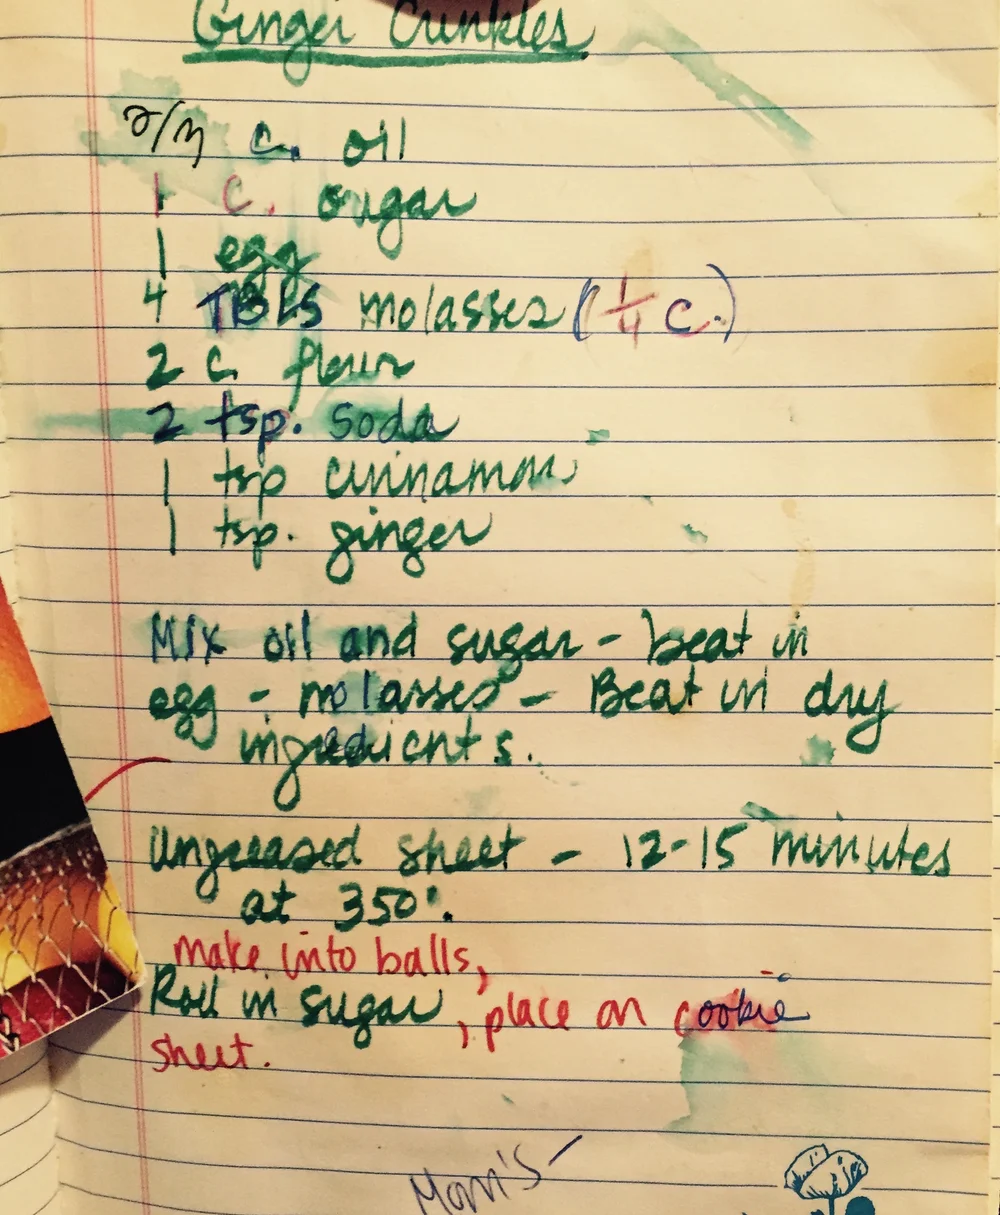 Ginger Crinkles
2/3 c. oil
1 c. sugar
1 egg
4 TBLS molasses (1/4 c.)
2 c. flour
2 tsp. soda
1 tsp cinnamon
1 tsp. ginger
Mix oil and sugar - beat in
egg - molasses - Beat in dry
ingredients.
Ungreased sheet - 12-15 minutes
at 350°.
make into balls,
Roll in sugar, place on cookie
sheet.
Mom's-